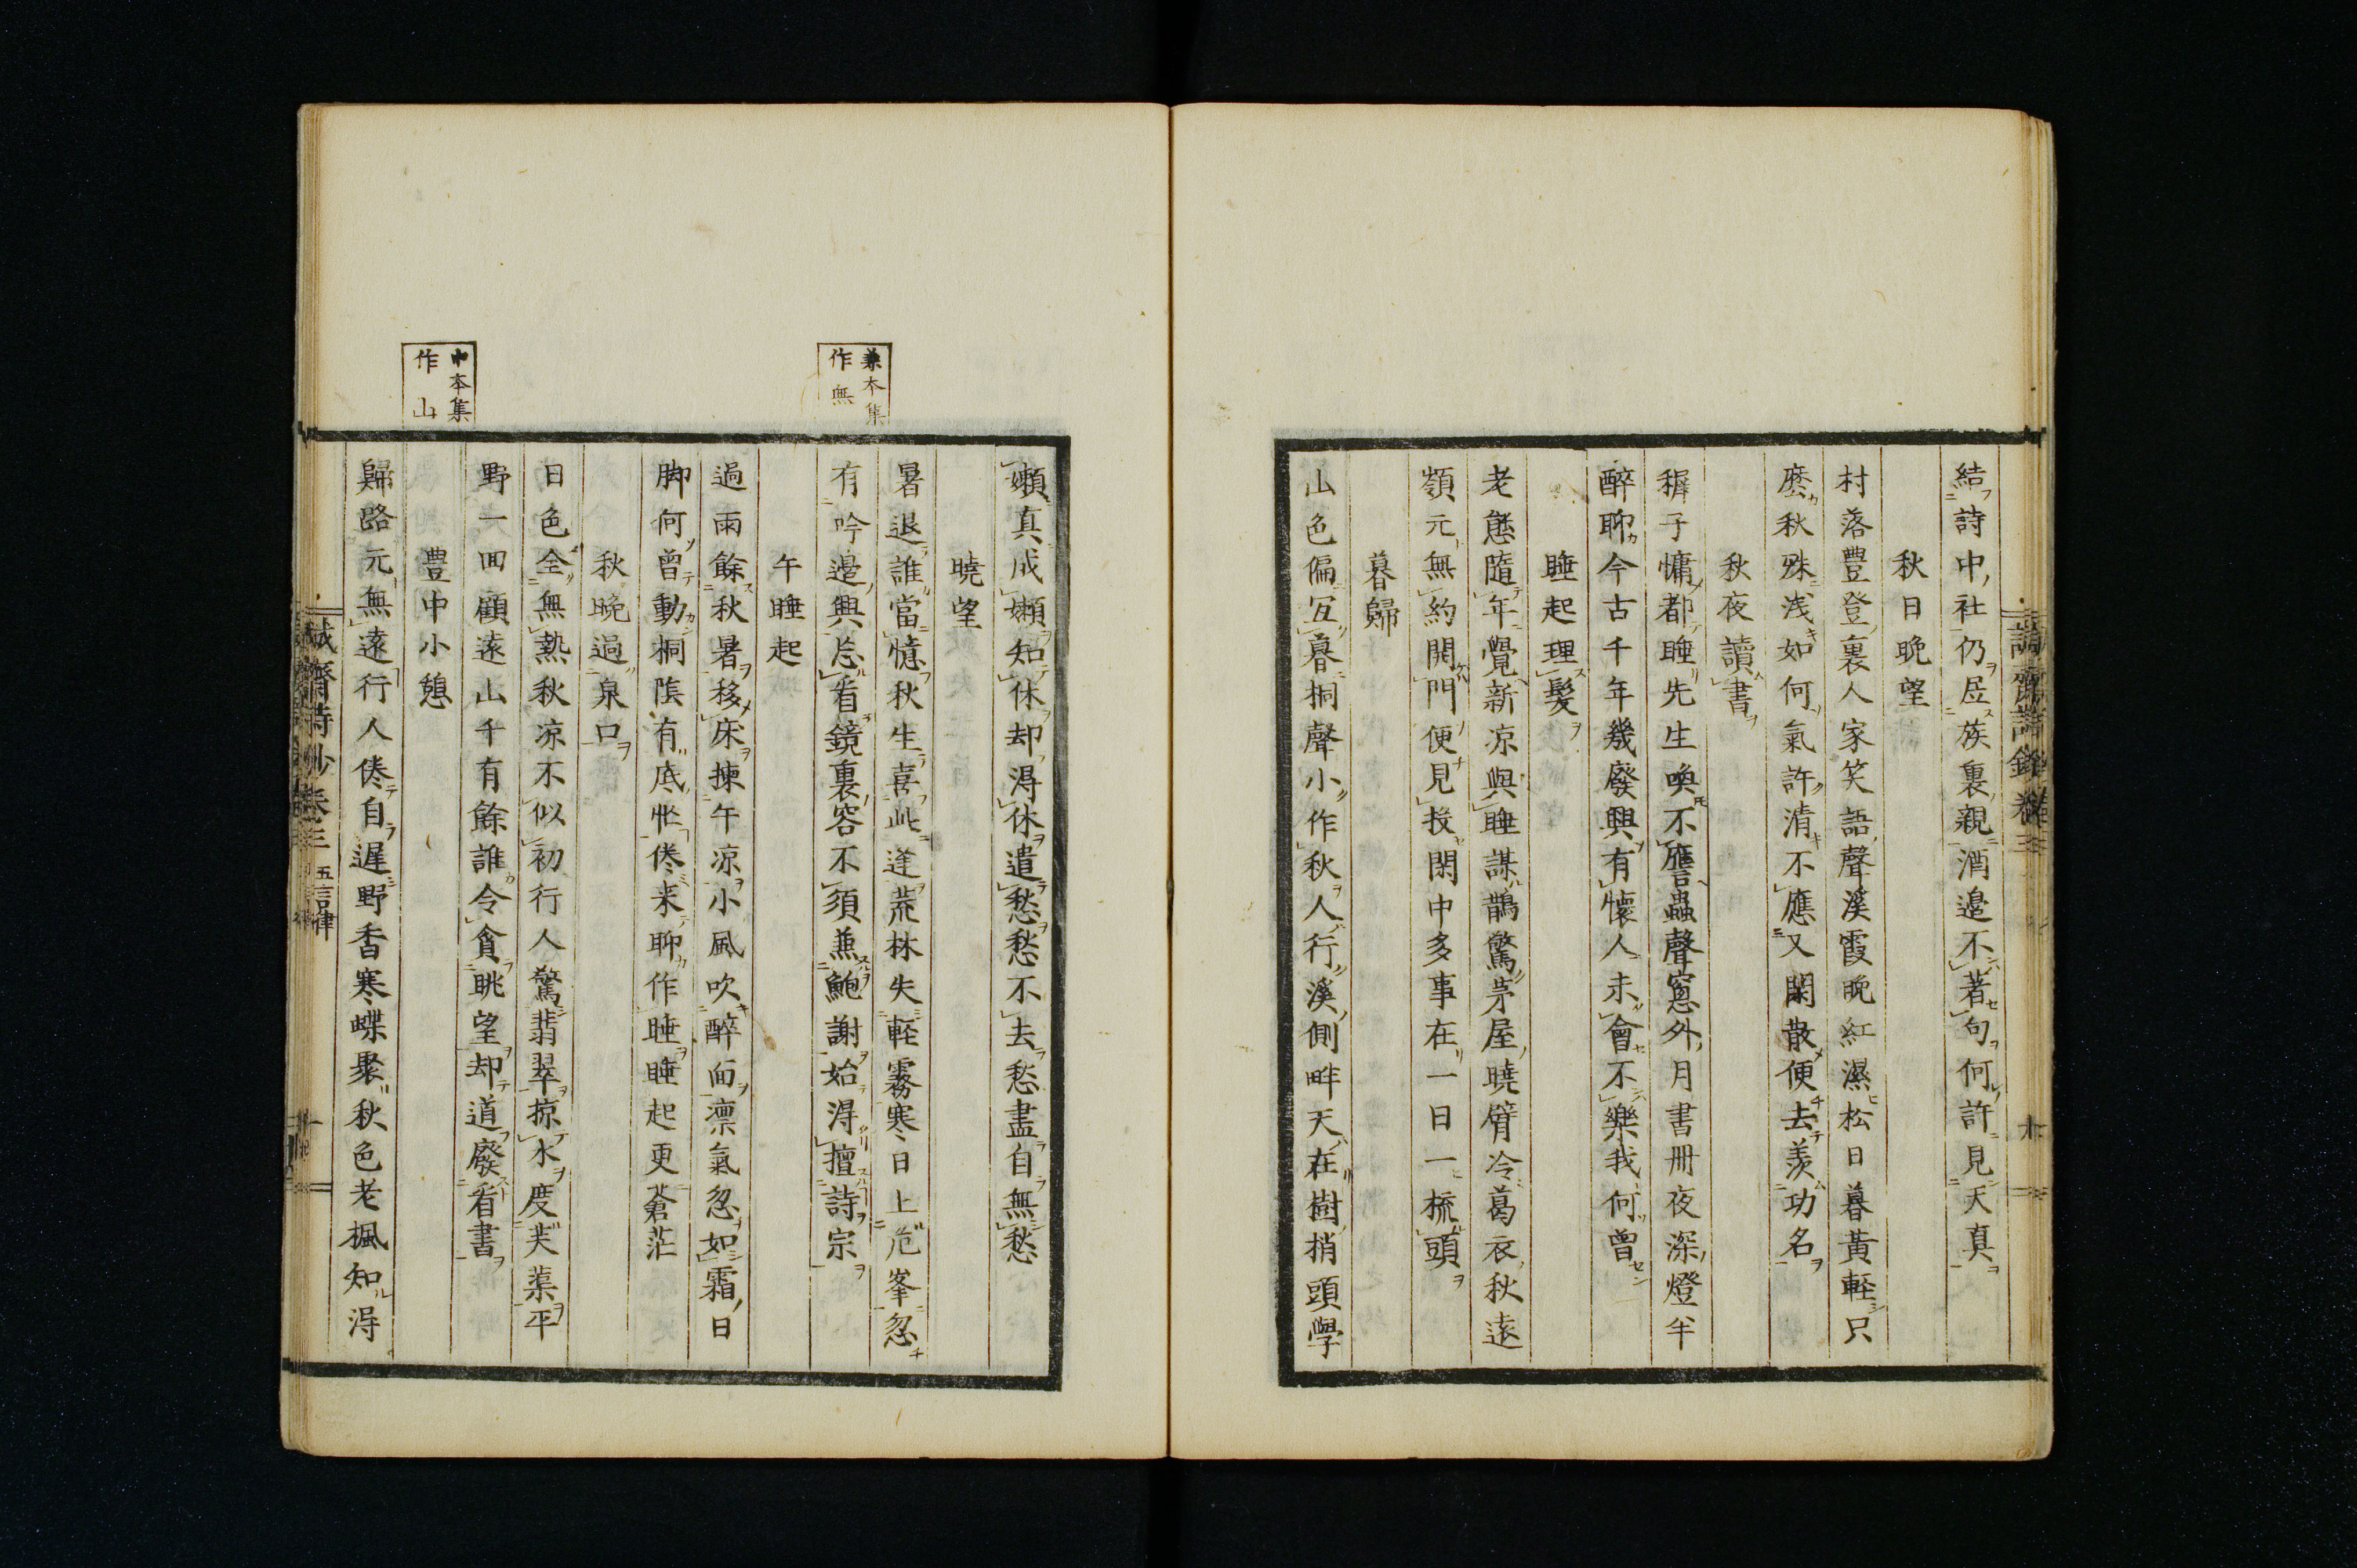 結詩中社仍居族裏親酒邉不著句何許見天真
秋日晚望
村落豊登裏人家笑語聲溪霞晚紅濕松日暮黃軽只
麽秋殊浅如何氣許清不應又閑散便去羨功名
秋夜讀書
穉子慵都睡先生喚不譍蟲聲窓外月書冊夜深燈半
醉聊今古千年幾廢興有懐人未會不樂我何曾
睡起理髮
老態隨年覺新凉與睡謀鵲驚茅屋曉臂冷葛衣秋遠
嶺元無約開門便見投閑中多事在一日一梳頭
暮歸
山色偏冝暮桐聲小作秋人行溪側畔天在樹梢頭學
嬾真成嬾知休却淂休遣愁愁不去愁盡自無愁
曉望
暑退誰當憶秋生喜此逢荒林失軽霧寒日上危峯忽
有吟邉興忩看鏡裏容不須兼鮑謝始淂擅詩宗
兼本集
作無
午睡起
過雨餘秋暑移床揀午凉小風吹醉面凛氣忽如霜日
脚何曾動桐陰有底忙倦来聊作睡睡起更蒼茫
秋晚過泉口
日色全無熱秋凉不似初行人驚翡翠掠水度芙蕖平
野一囬顧遠山千有餘誰令貪眺望却道廢看書
豊中小憩
中本集
作山
歸路元無遠行人倦自遲野香寒蝶聚秋色老楓知淂
誠齋詩鈔卷三
五言律